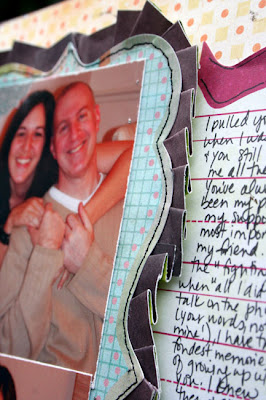 I pulled yo
when I wa
& you still
me all the
You've alwa
been my p
my suppo
most impor
my friend.
the "fightin
when "all I di
talk on the ph
(your words, no
mine). I have t
fondest memorie
of growing up w
you. I knew